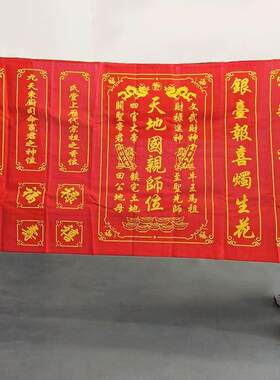 銀臺報喜燭生花
文武財神 牛王馬祖
財祿進神 至聖先師
天地國親師位
四官大帝 鎮宅土地
關聖帝君 田公地母
氏堂上歷代宗祖之香位
九天東廚司命竈君之神位
福
福
福
福